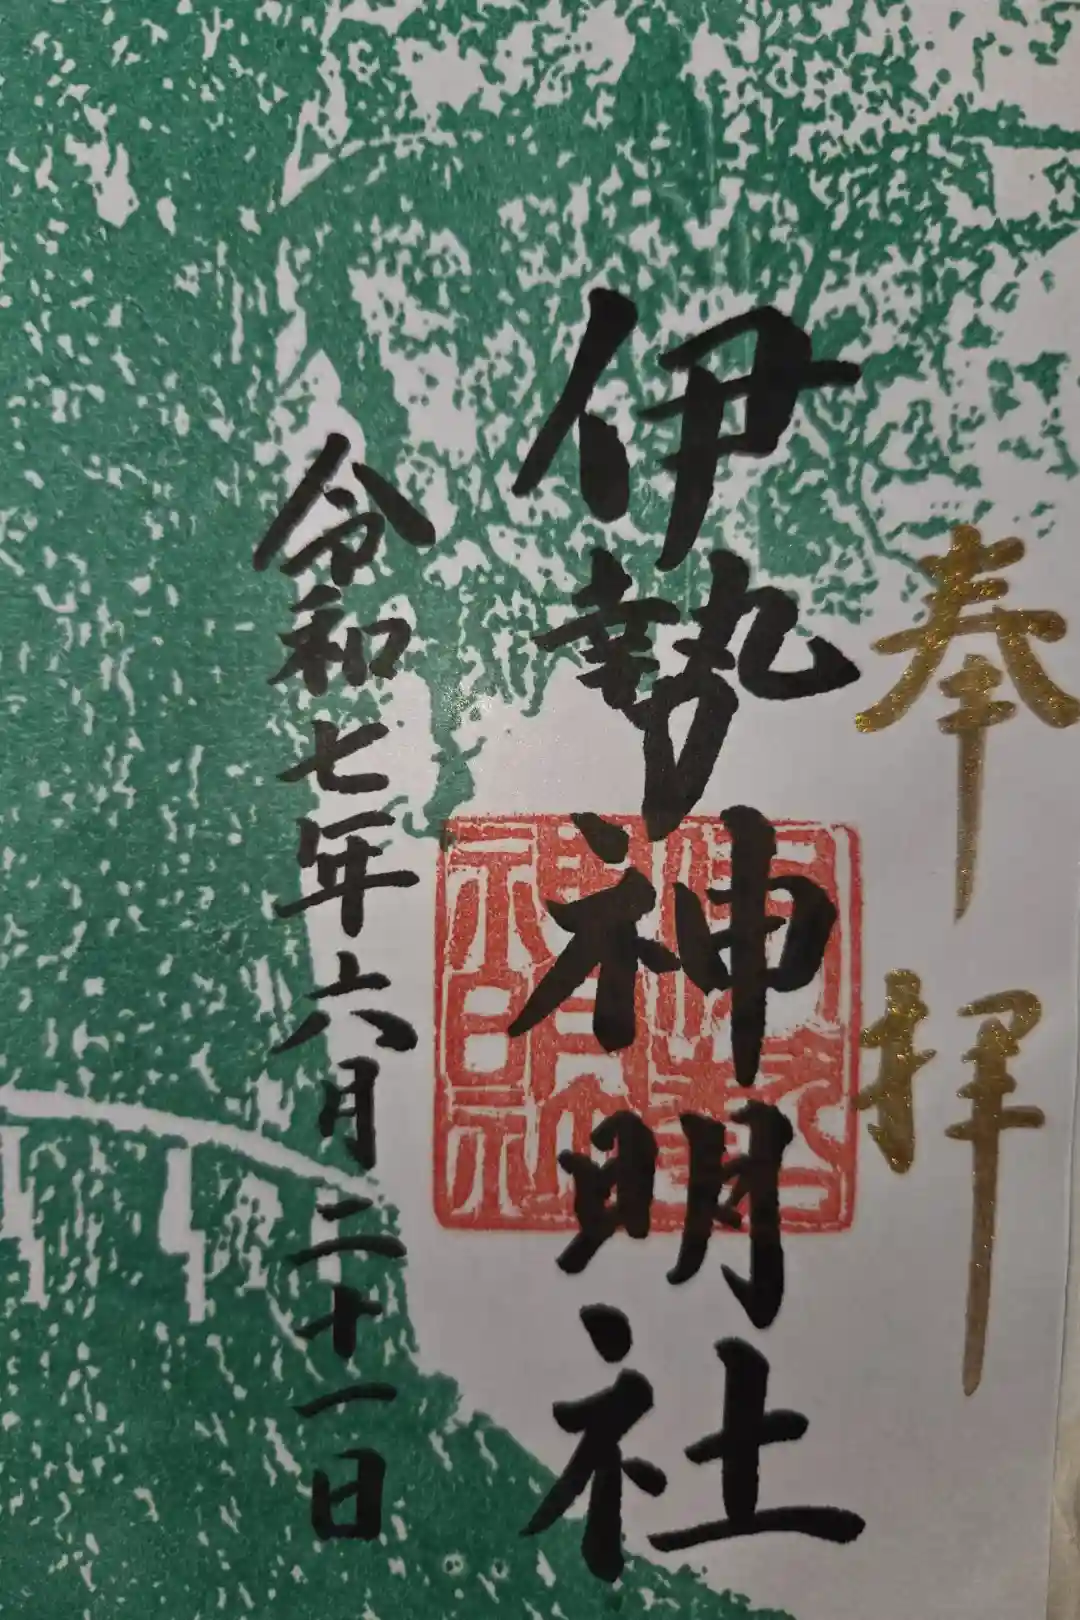 奉拝
伊勢神明社
令和七年六月二十一日